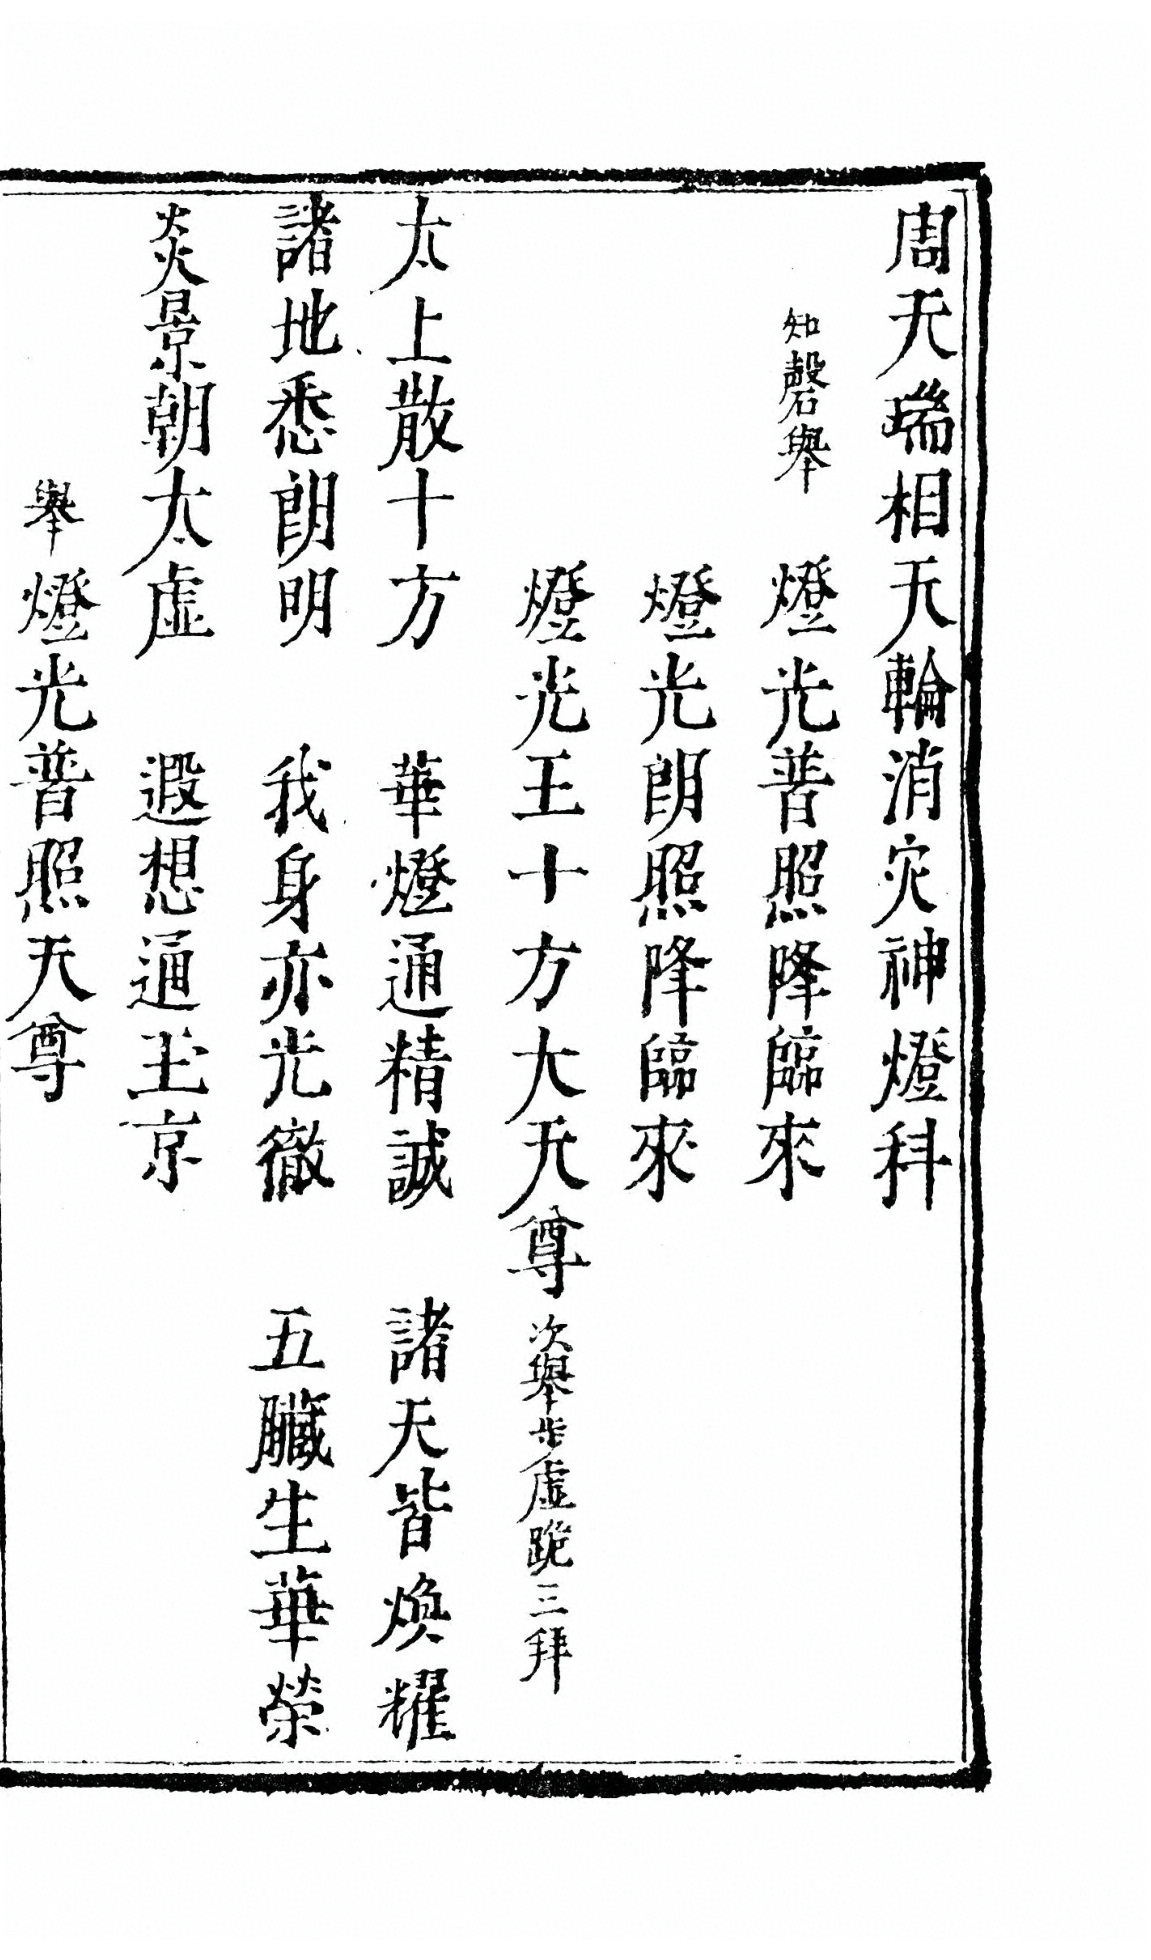 周天瑞相天輪消灾神燈科
知磬舉　燈光普照降臨來
燈光朗照降臨來
燈光王十方大天尊次舉步虛跪三拜
太上散十方　華燈通精誠　諸天皆煥耀
諸地悉朗明　我身亦光徹　五臟生華榮
炎景朝太虛　遐想通玉京
舉燈光普照天尊